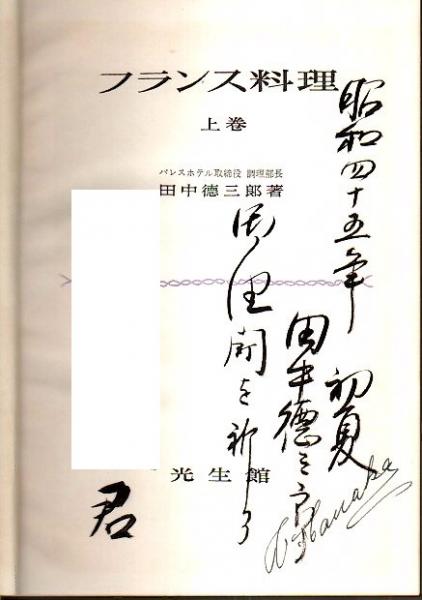 フランス料理
上巻
パレスホテル取締役 調理部長
田中德三郎著
光生館
昭和四十五年 初夏
田中德三郎
Tanaka
を祈る
君